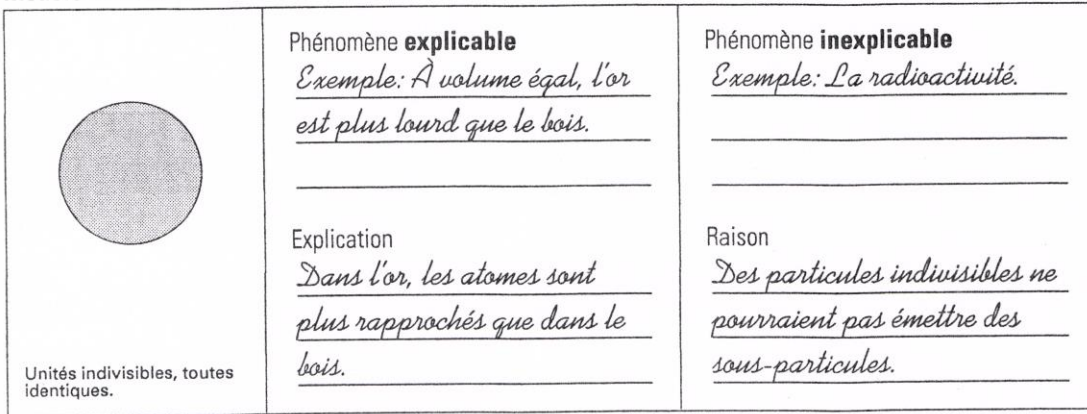 Unités indivisibles, toutes
identiques.
Phénomène explicable
Exemple: À volume égal, l'or
est plus lourd que le bois.
Explication
Dans l'or, les atomes sont
plus rapprochés que dans le
bois.
Phénomène inexplicable
Exemple: La radioactivité.
Raison
Des particules indivisibles ne
pourraient pas émettre des
sous-particules.